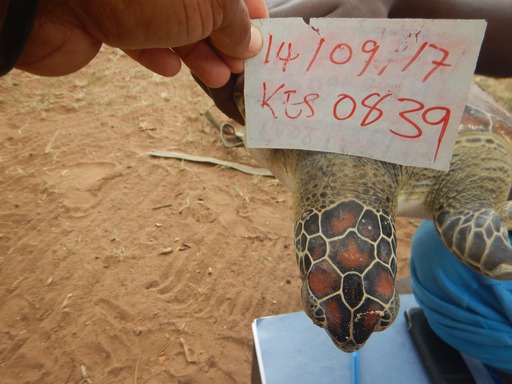 14/09/17
KES 0839